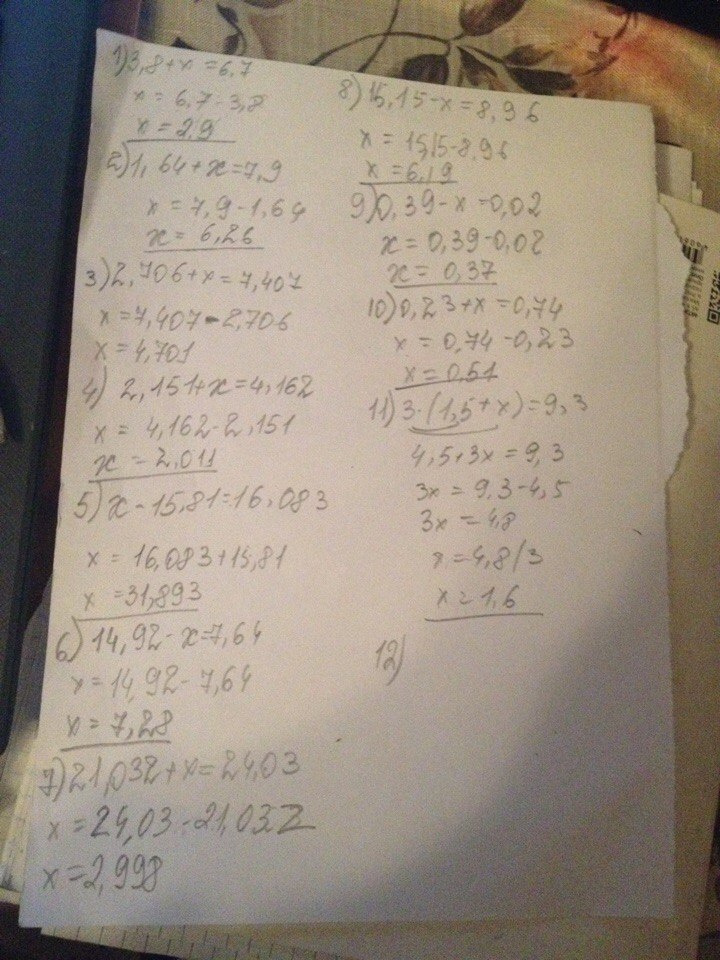 1) 3,8+x=6,7
x=6,7-3,8
x=2,9
2) 1,64+x=7,9
x=7,9-1,64
x=6,26
3) 2,706+x=7,407
x=7,407-2,706
x=4,701
4) 2,151+x=4,162
x=4,162-2,151
x=2,011
5) x-15,81=16,083
x=16,083+15,81
x=31,893
6) 14,92-x=7,64
x=14,92-7,64
x=7,28
7) 21,032+x=24,03
x=24,03-21,032
x=2,998
8) 15,15-x=8,96
x=15,15-8,96
x=6,19
9) 0,39-x=0,02
x=0,39-0,02
x=0,37
10) 0,23+x=0,74
x=0,74-0,23
x=0,51
11) 3·(1,5+x)=9,3
4,5+3x=9,3
3x=9,3-4,5
3x=4,8
x=4,8/3
x=1,6
12)